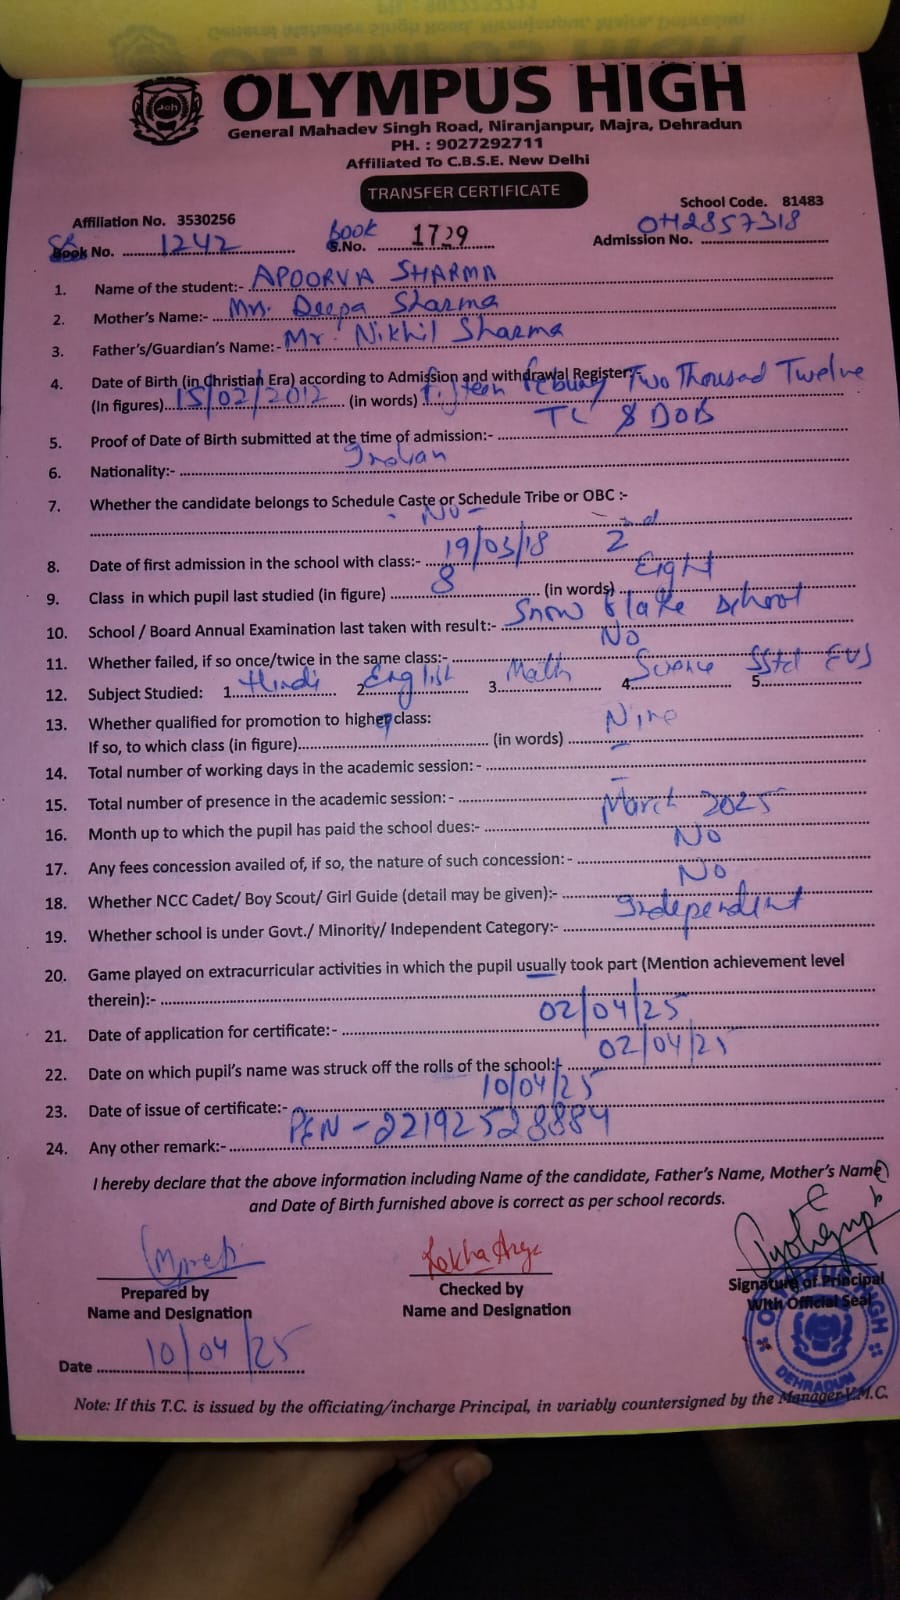 OLYMPUS HIGH
General Mahadev Singh Road, Niranjanpur, Majra, Dehradun
PH. : 9027292711
Affiliated To C.B.S.E. New Delhi
TRANSFER CERTIFICATE
Affiliation No. 3530256 School Code. 81483
Book No. 1242 Book S.No. 1729 Admission No. OH2857318
1. Name of the student:- APOORVA SHARMA
2. Mother's Name:- Mrs. Deepa Sharma
3. Father's/Guardian's Name:- Mr. Nikhil Sharma
4. Date of Birth (in Christian Era) according to Admission and withdrawal Register:
(In figures) 15/02/2012 (in words) fifteen Two Thousand Twelve
5. Proof of Date of Birth submitted at the time of admission:- TC & DOB
6. Nationality:- Indian
7. Whether the candidate belongs to Schedule Caste or Schedule Tribe or OBC :-
- No -
8. Date of first admission in the school with class:- 19/03/18 2nd
9. Class in which pupil last studied (in figure) 8 (in words) Eight
10. School / Board Annual Examination last taken with result:- Snow flake school
11. Whether failed, if so once/twice in the same class:- No
12. Subject Studied: 1. Hindi 2. English 3. Math 4. Science 5. SStd EVS
13. Whether qualified for promotion to higher class:
If so, to which class (in figure) (in words) Nine
14. Total number of working days in the academic session: - –
15. Total number of presence in the academic session: - –
16. Month up to which the pupil has paid the school dues:- March 2025
17. Any fees concession availed of, if so, the nature of such concession: - No
18. Whether NCC Cadet/ Boy Scout/ Girl Guide (detail may be given):- No
19. Whether school is under Govt./ Minority/ Independent Category:- Independent
20. Game played on extracurricular activities in which the pupil usually took part (Mention achievement level
therein):-
21. Date of application for certificate:- 02/04/25
22. Date on which pupil's name was struck off the rolls of the school:- 02/04/25
23. Date of issue of certificate:- 10/04/25
24. Any other remark:- PEN - 22192528884
I hereby declare that the above information including Name of the candidate, Father's Name, Mother's Name
and Date of Birth furnished above is correct as per school records.
Prepared by Checked by Signature of Principal
Name and Designation Name and Designation With Official Seal
DEHRADUN
Date 10/04/25
Note: If this T.C. is issued by the officiating/incharge Principal, in variably countersigned by the Manager V.M.C.